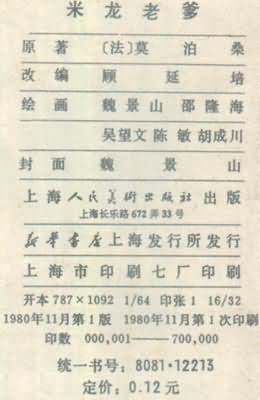 米龙老爹
原著 〔法〕莫泊桑
改编 顾延培
绘画 魏景山 邵隆海
吴望文 陈敏 胡成川
封面 魏景山
上海人民美術出版社 出版
上海长乐路672弄33号
新华书店上海发行所发行
上海市印刷七厂印刷
开本787×1092 1/64 印张1 16/32
1980年11月第1版 1980年11月第1次印刷
印数 000,001——700,000
统一书号：8081·12213
定价：0.12元